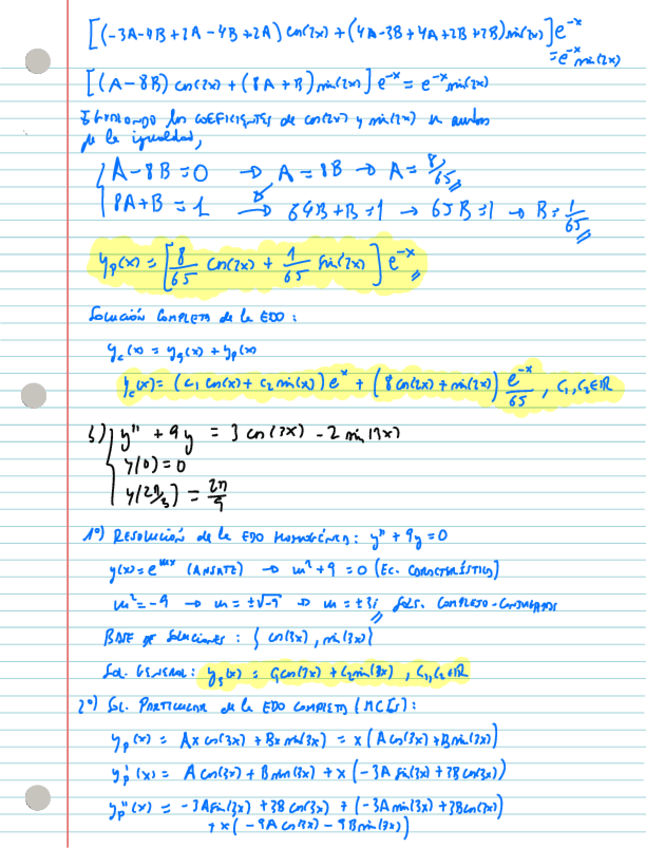 [(-3A-4B+2A-4B+2A) cos(2x)+(4A-3B+4A+2B+2B) sin(2x)]e^{-x}
=e^{-x} sin(2x)
[(A-8B) cos(2x)+(8A+B) sin(2x)] e^{-x} = e^{-x} sin(2x)
IGUALANDO los COEFICIENTES de cos(2x) y sin(2x) en ambos
de la igualdad,
A-8B=0 → A=8B → A=8/65
8A+B=1 → 64B+B=1 → 65B=1 → B=1/65
y_p(x)=[8/65 cos(2x)+1/65 sin(2x)]e^{-x}
SOLUCIÓN COMPLETA de la EDO:
y_c(x)=y_g(x)+y_p(x)
y_c(x)=(C₁ cos(x)+C₂ sin(x))e^x+(8cos(2x)+sin(2x)) e^{-x}/65, C₁,C₂∈ℝ
3) y''+9y=3cos(3x)-2sin(3x)
y(0)=0
y(2π/3)=2π/9
1º) RESOLUCIÓN de la EDO HOMOGÉNEA: y''+9y=0
y(x)=e^{mx} (ANSATZ) → m²+9=0 (EC. CARACTERÍSTICA)
m²=-9 → m=±√-9 → m=±3i Sols. COMPLEJO-CONJUGADAS
BASE DE Soluciones: {cos(3x), sin(3x)}
Sol. GENERAL: y_g(x)=C₁cos(3x)+C₂sin(3x), C₁,C₂∈ℝ
2º) Sol. PARTICULAR de la EDO COMPLETA (MCI):
y_p(x)=Ax cos(3x)+Bx sin(3x)=x(A cos(3x)+B sin(3x))
y_p'(x)=A cos(3x)+B sin(3x)+x(-3A sin(3x)+3B cos(3x))
y_p''(x)=-3A sin(3x)+3B cos(3x)+(-3A sin(3x)+3B cos(3x))
+x(-9A cos(3x)-9B sin(3x))